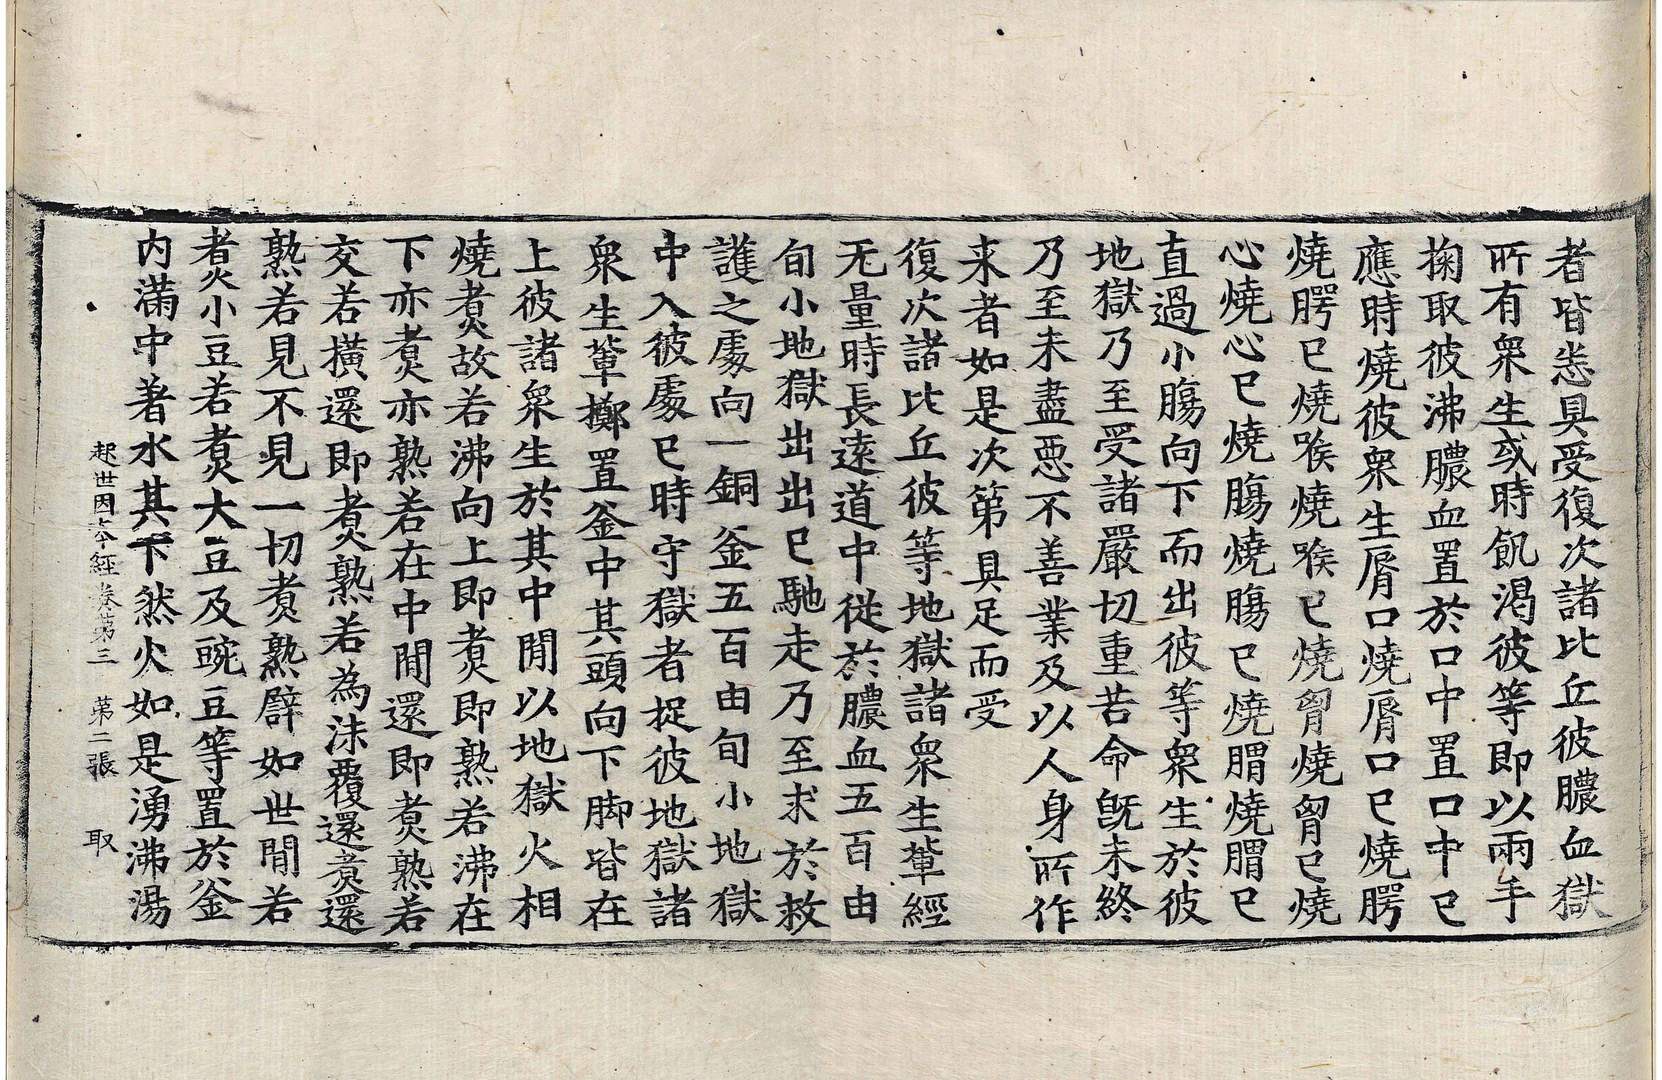 者皆悉具受復次諸比丘彼膿血獄
所有衆生或時飢渴彼等即以兩手
掬取彼沸膿血置於口中置口中已
應時燒彼衆生脣口燒脣口已燒腭
燒腭已燒喉燒喉已燒胷燒胷已燒
心燒心已燒膓燒膓已燒腪燒腪已
直過小膓向下而出彼等衆生於彼
地獄乃至受諸嚴切重苦命旣未終
乃至未盡惡不善業及以人身所作
来者如是次第具足而受
復次諸比丘彼等地獄諸衆生輩經
无量時長遠道中從於膿血五百由
旬小地獄出出已馳走乃至求於救
護之處向一銅釜五百由旬小地獄
中入彼處已時守獄者捉彼地獄諸
衆生輩擲置釜中其頭向下脚皆在
上彼諸衆生於其中閒以地獄火相
燒煑故若沸向上即煑即熟若沸在
下亦煑亦熟若在中閒還即煑熟若
交若橫還即煑熟若為沫覆還煑還
熟若見不見一切煑熟譬如世閒若
煑小豆若煑大豆及豌豆等置於釜
內滿中著水其下然火如是湧沸湯
起世因夲經卷第三　第二張　取